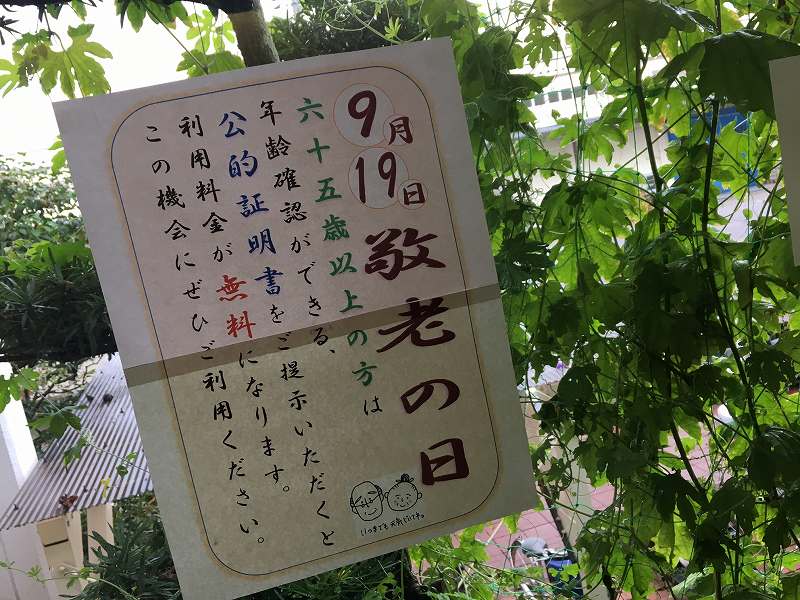 9月19日 敬老の日
六十五歳以上の方は
年齢確認ができる、
公的証明書をご提示いただくと
利用料金が無料になります。
この機会にぜひご利用ください。
いつまでも お元気で。